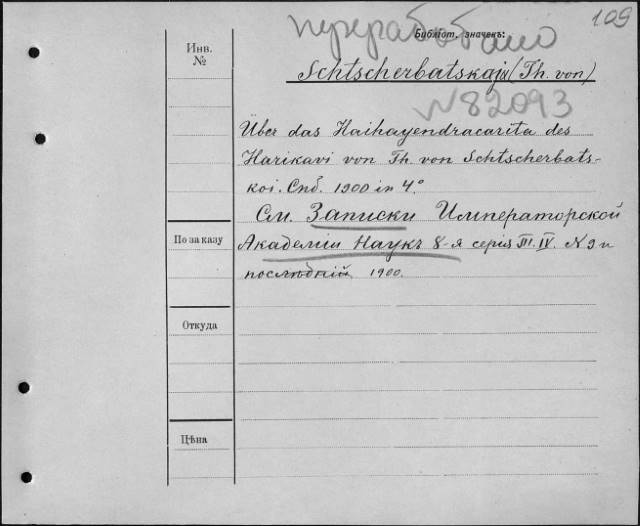 переработано
109
Библіот. значекъ:
Инв.
№
Schtscherbatskaja (Th. von)
N82093
Über das Haihayendracarita des
Harikavi von Th. von Schtscherbats-
koi. Спб. 1900 in 4°
См. Записки Императорской
По заказу
Академіи Наукъ 8-я серія T. IV. N 9 и
послѣдній 1900.
Откуда
Цѣна